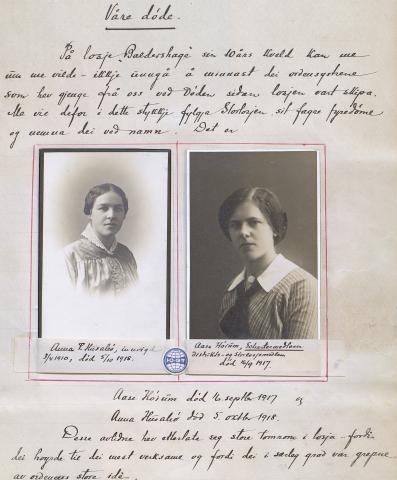 Våre døde.
På losje "Baldershage" sin 10 års kveld kan me
um me vild - ikkje unngå å minnast dei ordenssystrene
som hev gjenge frå oss ved Døden sidan losjen vart skipa.
Me vil defor i dette stykkje fylgja Storlosjen sit fagre fyredøme
og nemna dei ved namn. Det er
Anna T. Husabö, innvigd
3/4 1910, død 5/10 1918.
Aase Hósum,
Distrikts- og Storlosjemedlem
død 16/9 1917.
IOGT
Aase Hósum død 16. septbr 1917 og
Anna Husabö død 5. oktbr 1918.
Desse avlidne hev etterlate seg store tomrom i losja fordi
dei høyrde til dei mest verksame og fordi dei i særleg grad var gripne
av ordenens store idè.